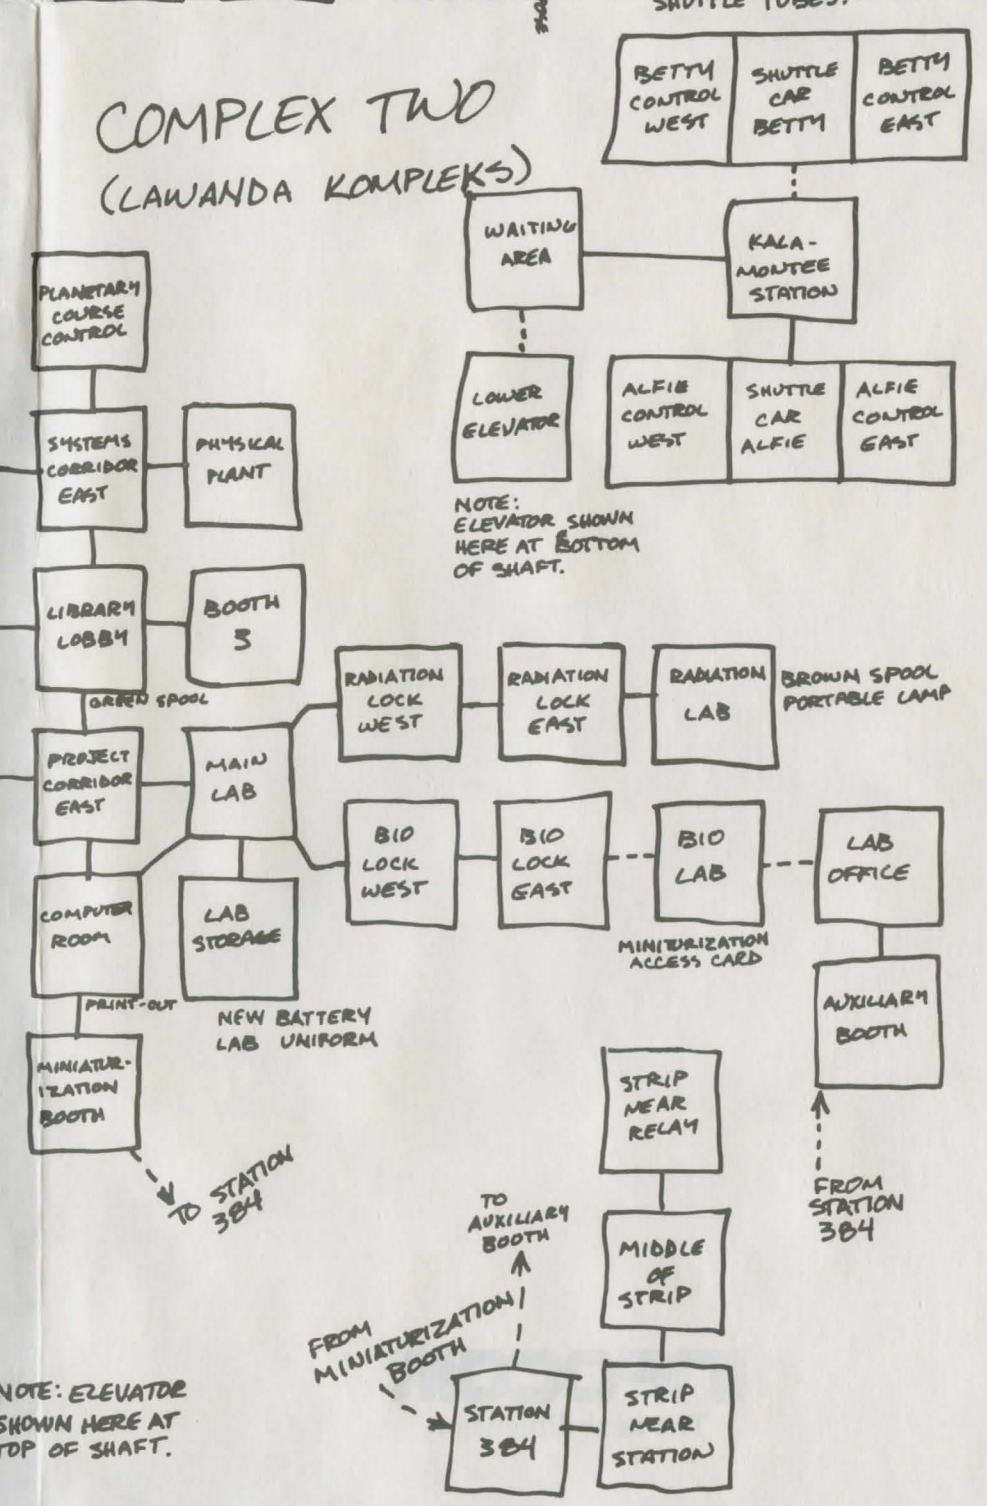 SHUTTLE TUBES.
COMPLEX TWO
(LAWANDA KOMPLEKS)
BETTY
CONTROL
WEST
SHUTTLE
CAR
BETTY
BETTY
CONTROL
EAST
WAITING
AREA
KALA-
MONTEE
STATION
LOWER
ELEVATOR
ALFIE
CONTROL
WEST
SHUTTLE
CAR
ALFIE
ALFIE
CONTROL
EAST
NOTE:
ELEVATOR SHOWN
HERE AT BOTTOM
OF SHAFT.
PLANETARY
COURSE
CONTROL
SYSTEMS
CORRIDOR
EAST
PHYSICAL
PLANT
LIBRARY
LOBBY
BOOTH
3
GREEN SPOOL
RADIATION
LOCK
WEST
RADIATION
LOCK
EAST
RADIATION
LAB
BROWN SPOOL
PORTABLE LAMP
PROJECT
CORRIDOR
EAST
MAIN
LAB
BIO
LOCK
WEST
BIO
LOCK
EAST
BIO
LAB
MINITURIZATION
ACCESS CARD
LAB
OFFICE
COMPUTER
ROOM
LAB
STORAGE
PRINT-OUT
NEW BATTERY
LAB UNIFORM
AUXILIARY
BOOTH
MINIATUR-
IZATION
BOOTH
TO STATION
384
STRIP
NEAR
RELAY
FROM
STATION
384
TO
AUXILIARY
BOOTH
MIDDLE
OF
STRIP
FROM
MINIATURIZATION
BOOTH
STATION
384
STRIP
NEAR
STATION
NOTE: ELEVATOR
SHOWN HERE AT
TOP OF SHAFT.